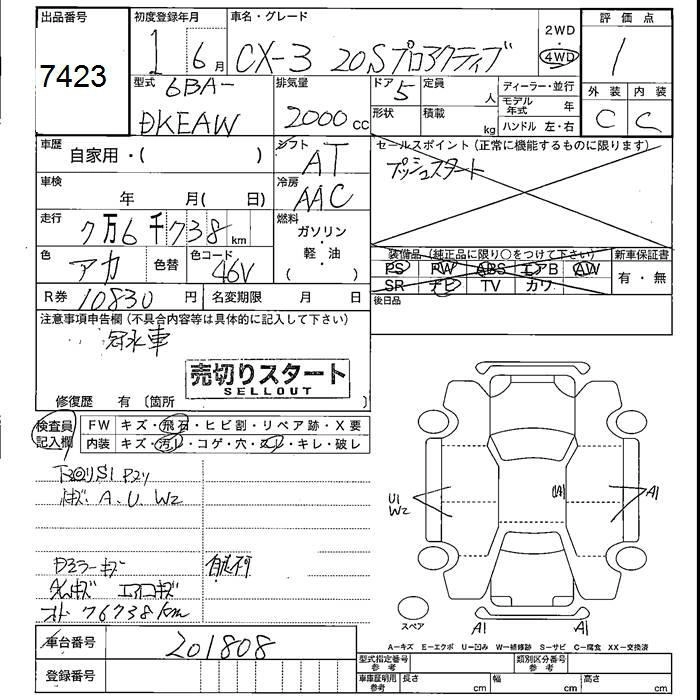 出品番号
7423
初度登録年月
1年 6月
車名・グレード
CX-3 20Sプロアクティブ
2WD
4WD
評価点
1
型式
6BA-
DKEAW
排気量
2000cc
ドア
5
定員
人
形状
積載
kg
ディーラー・並行
モデル年式 年
ハンドル 左・右
外装 内装
C C
車歴
自家用・( )
シフト
AT
車検
年 月( 日)
冷房
AAC
セールスポイント(正常に機能するものに限ります)
プッシュスタート
走行
7万6千738km
燃料
ガソリン
軽・油
( )
色
アカ
色替
色コード
46V
装備品(純正品に限り○をつけて下さい)
PS PW ABS エアB AW
SR ナビ TV カワ
新車保証書
有・無
R券 10830円
名変期限 月 日
後日品
注意事項申告欄(不具合内容等は具体的に記入して下さい)
冠水車
売切りスタート
SELLOUT
修復歴 有〔箇所 〕
検査員記入欄
FW キズ・飛石・ヒビ割・リペア跡・X要
内装 キズ・汚レ・コゲ・穴・スレ・キレ・破レ
A、U、W2
Dミラーキズ
エアロキズ
オド 76738km
U1
W2
A1
A1
A1
スペア
A−キズ E−エクボ U−凹み W−補修跡 S−サビ C−腐食 XX−交換済
車台番号
201808
登録番号
型式指定番号
参考
類別区分番号
参考
車庫証明用
参考
長さ cm
幅 cm
高さ cm